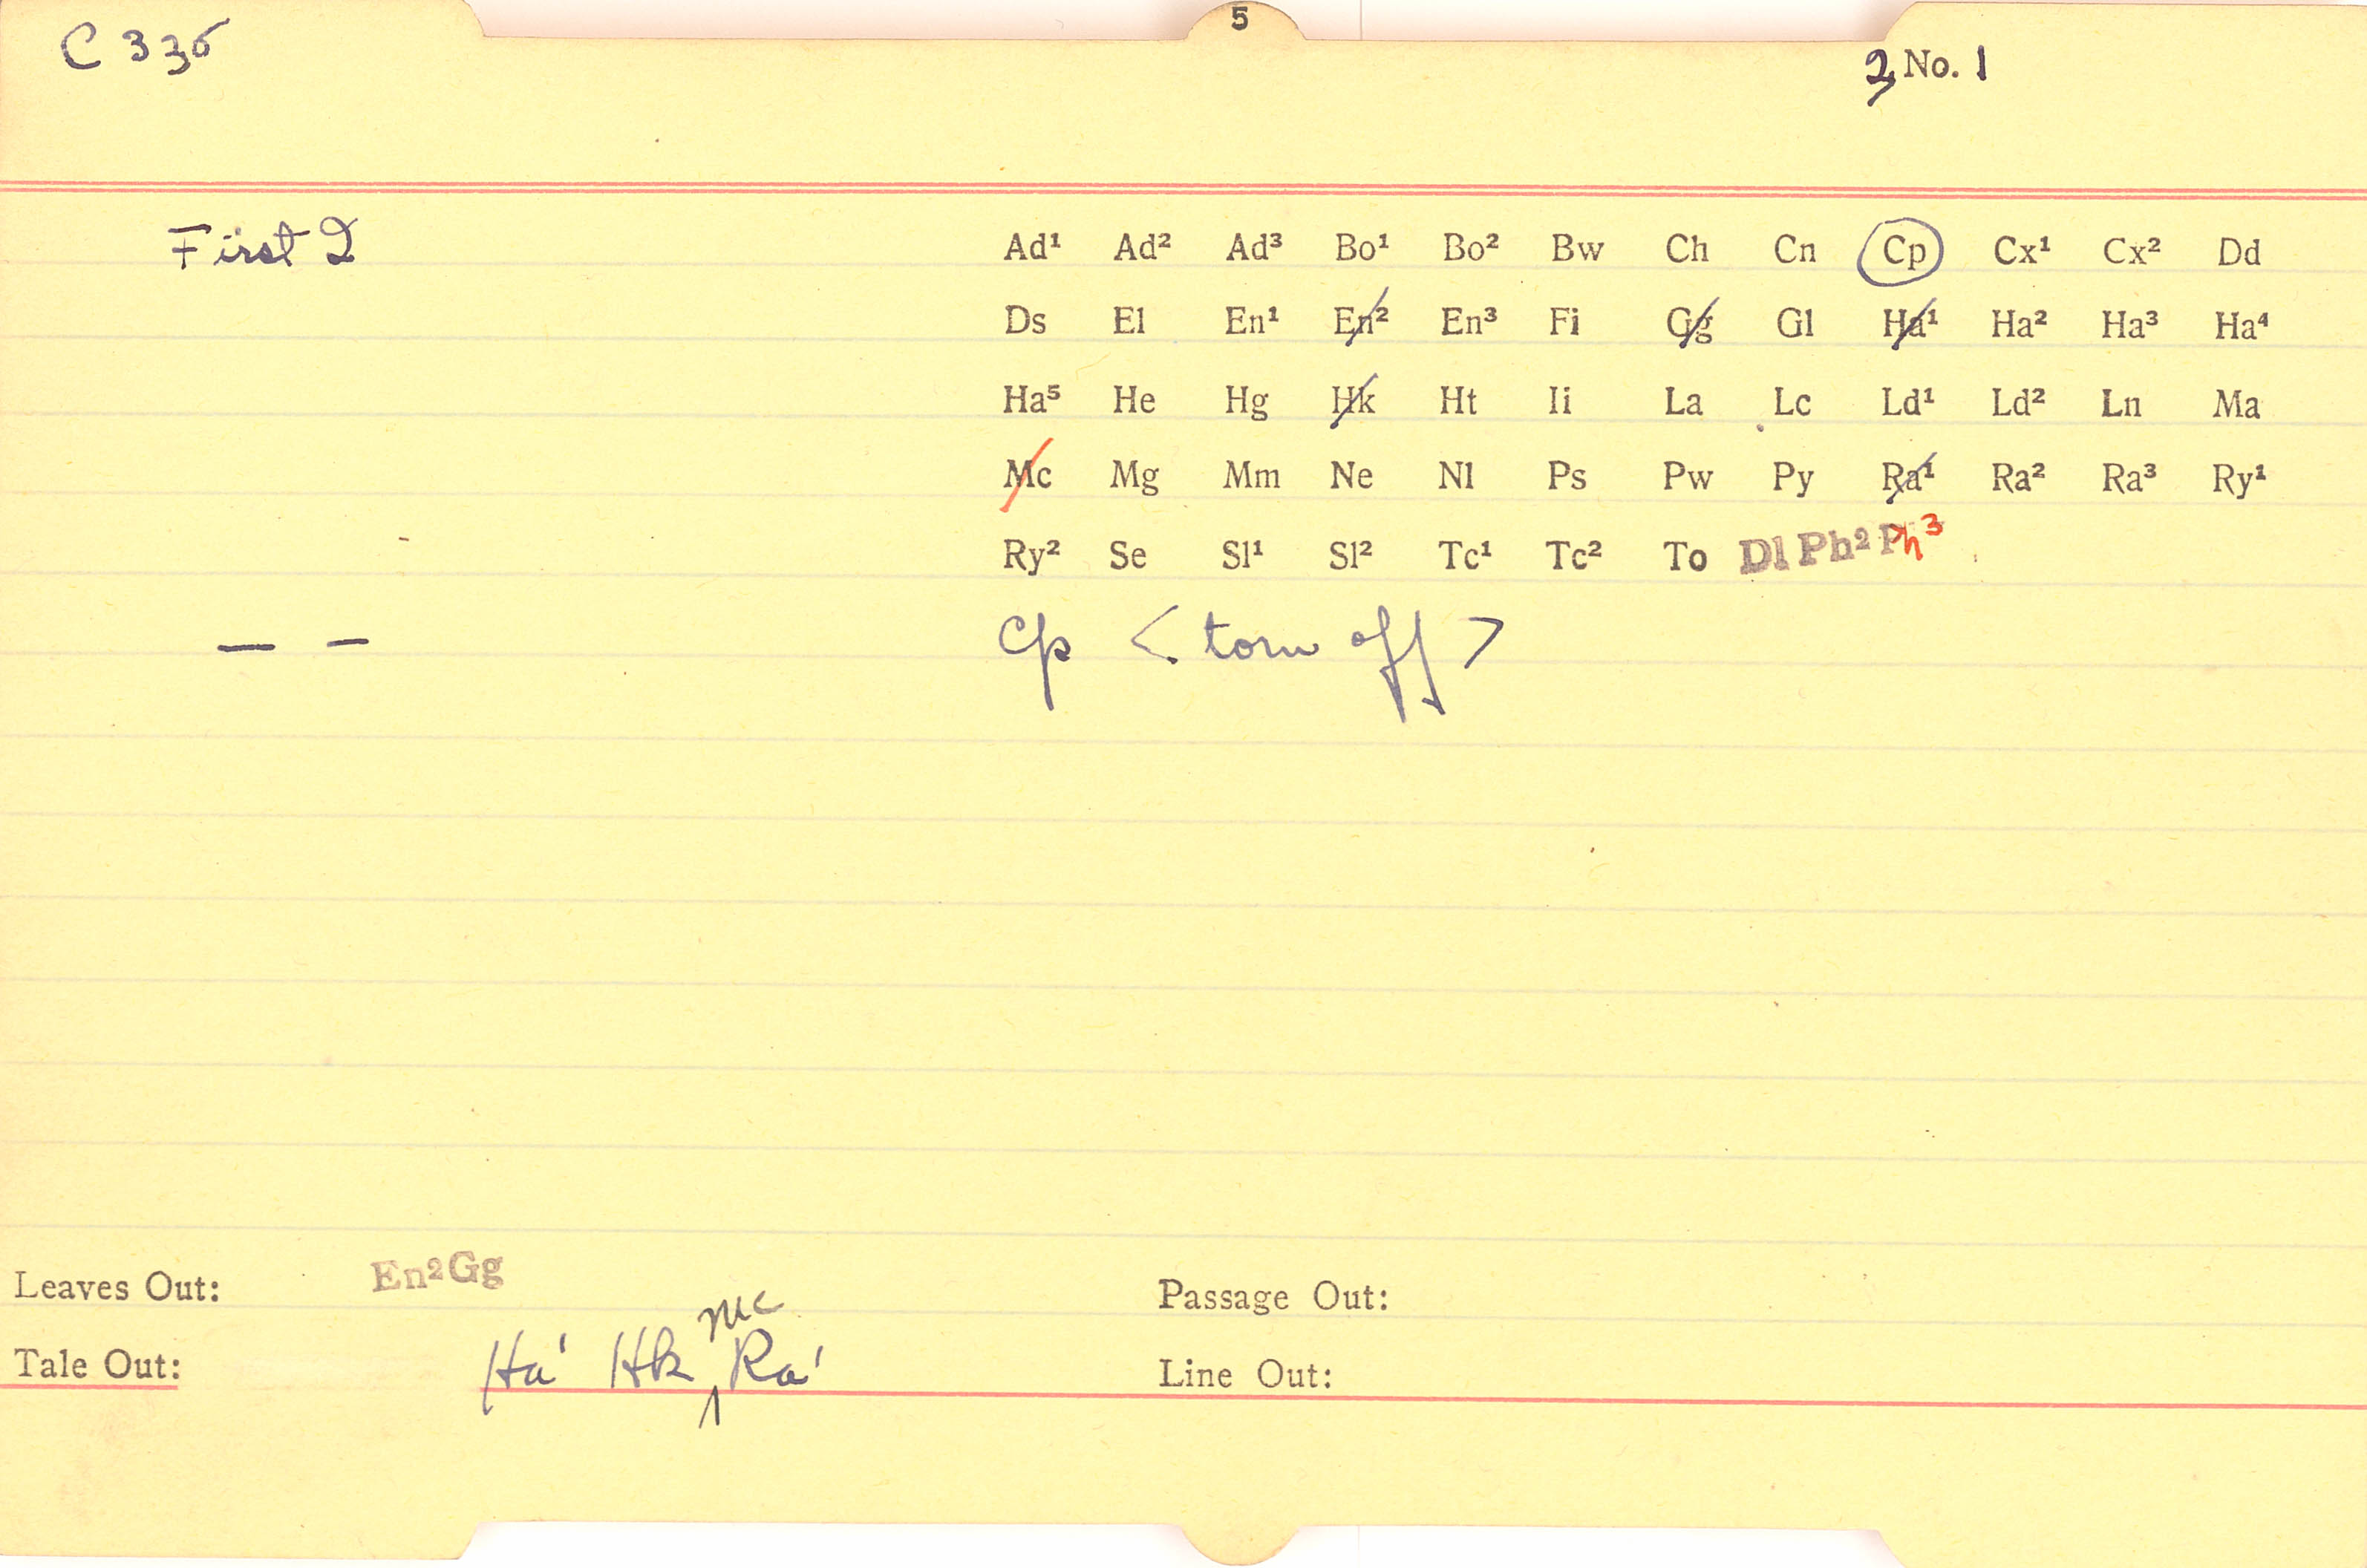 5
C 335
2 No. 1
First I
Ad¹ Ad² Ad³ Bo¹ Bo² Bw Ch Cn Cp Cx¹ Cx² Dd
Ds El En¹ En² En³ Fi Gg Gl Ha¹ Ha² Ha³ Ha⁴
Ha⁵ He Hg Hk Ht Ii La Lc Ld¹ Ld² Ln Ma
Mc Mg Mm Ne Nl Ps Pw Py Ra¹ Ra² Ra³ Ry¹
Ry² Se Sl¹ Sl² Tc¹ Tc² To Dl Ph² Ph³
— — Cp < torn off >
Leaves Out: En² Gg
Passage Out:
Tale Out: Ha¹ Hk Mc Ra¹
Line Out: